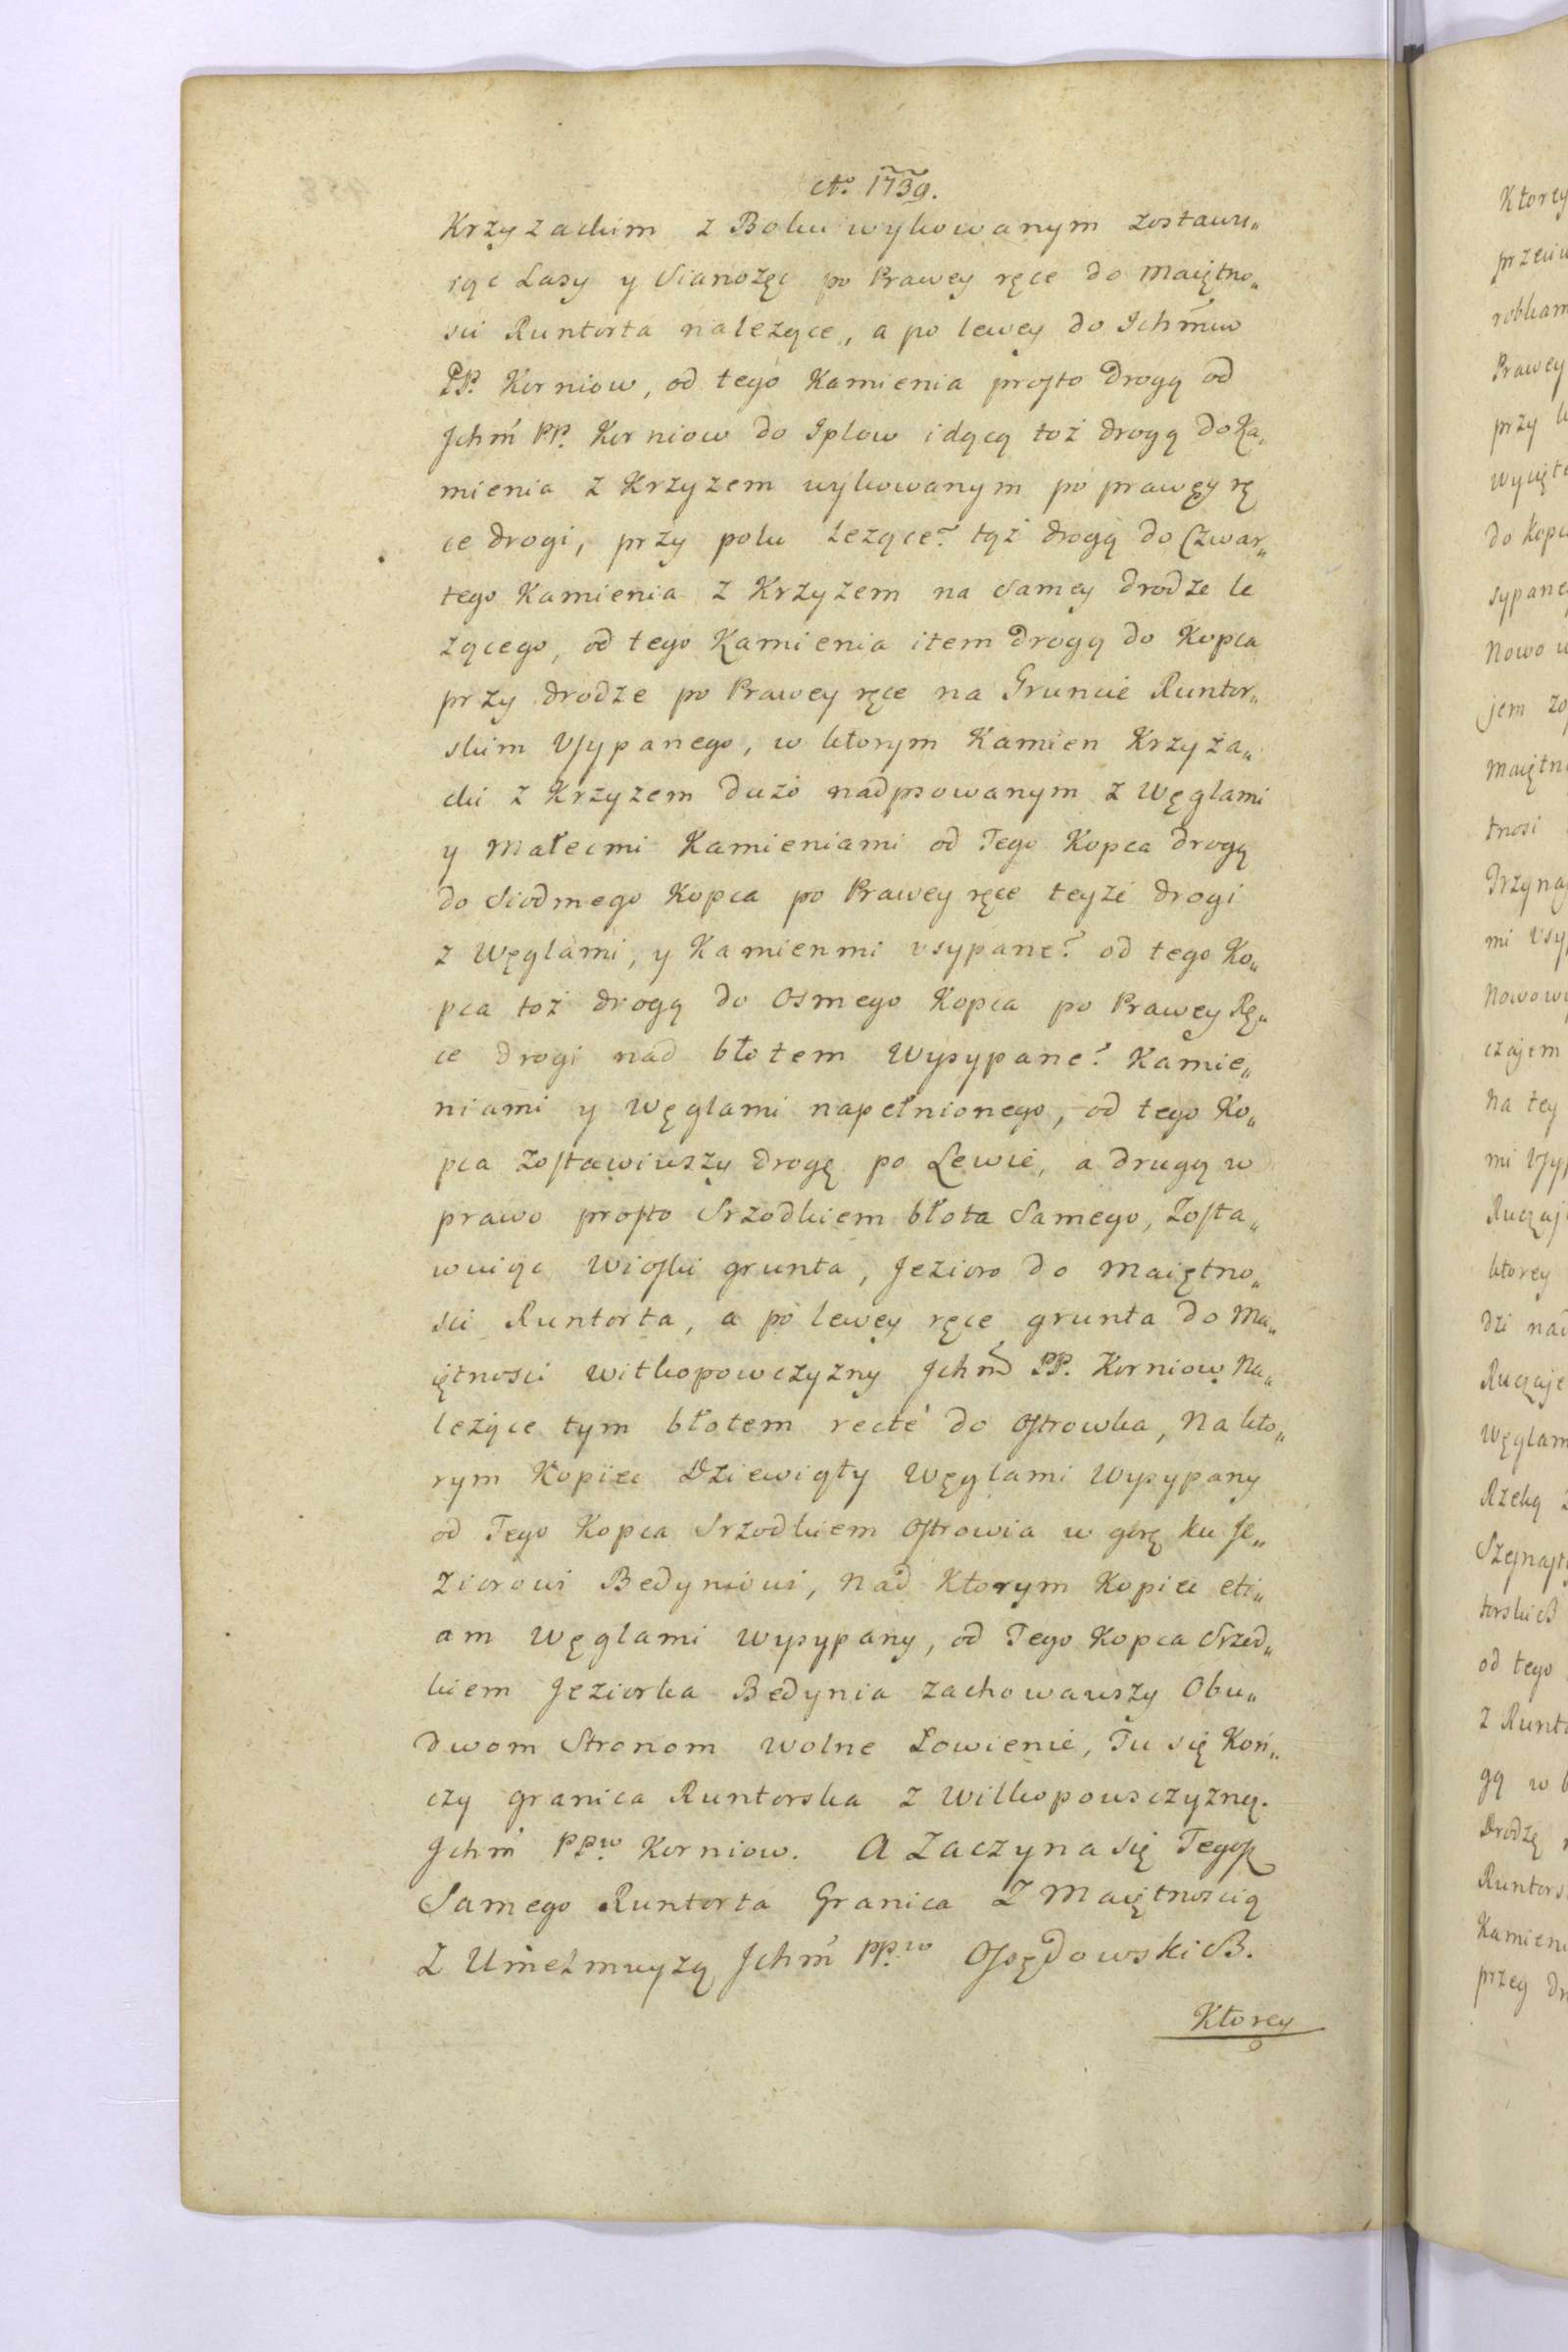 Ao. 1739.
Krzyzackim z Boku wykowanym zostawu„
iąc Lasy y Sianozęc po Prawey ręce do Maiętno„
sci Runtorta nalezące, a po lewey do Ichmiw
PP. Korniow, od tego Kamienia prosto drogą od
Jchm PP. Korniow do Iplow idącą toż drogą do Ka„
mienia z Krzyzem wykowanym po prawęy rę
ce drogi, przy polu Lezące? tąż drogą do Czwar„
tego Kamienia z Krzyzem na Samey drodze le
zącego, od tego Kamienia item drogą do Kopca
przy drodze po Prawey ręce na Gruncie Runtor„
skim Vsypanego, w ktorym Kamien Krzyża„
cki z Krzyzem dużo nadpsowanym z Węglami
y Małemi Kamieniami od Tego Kopca drogą
do Siodmego Kopca po Prawey ręce teyże drogi
z Węglami, y Kamienmi vsypane? od tego Ko„
pca toż drogą do Osmego Kopca po Prawęy Rę„
ce drogi nad błotem Wysypane? Kamie„
niami y Węglami napełnionego, od tego Ko„
pca Zostawiwszy drogę po Lewie, a drugą w
prawo prosto Srzodkiem błota Samego, Zosta„
wuiąc Wioski grunta, Jezioro do Maiętno„
sci Runtorta, a po lewey ręce grunta do Ma„
iętnosci Witkopowczyzny Jchm PP. Korniow Na„
leżące tym błotem recte do Ostrowka, Na kto„
rym Kopiec Dziewiąty Węglami Wysypany
od Tego Kopca Srzodkiem Ostrowia w gorę ku Je„
ziorowi Bedyniowi, Nad Ktorym Kopiec eti„
am Węglami wysypany, od Tego Kopca Srzed„
kiem Jeziorka Bedynia zachowawszy Obu„
dwom Stronom wolne Łowienie, Tu się Koń„
czy granica Runtorska z Wilkopowsczyzną.
Jchm PPw Korniow. A Zaczyna się Tegoż
Samego Runtorta Granica Z Maiętnoscią
Z Umelmuyżą Jchm PPw Osędowskich.
Ktorey